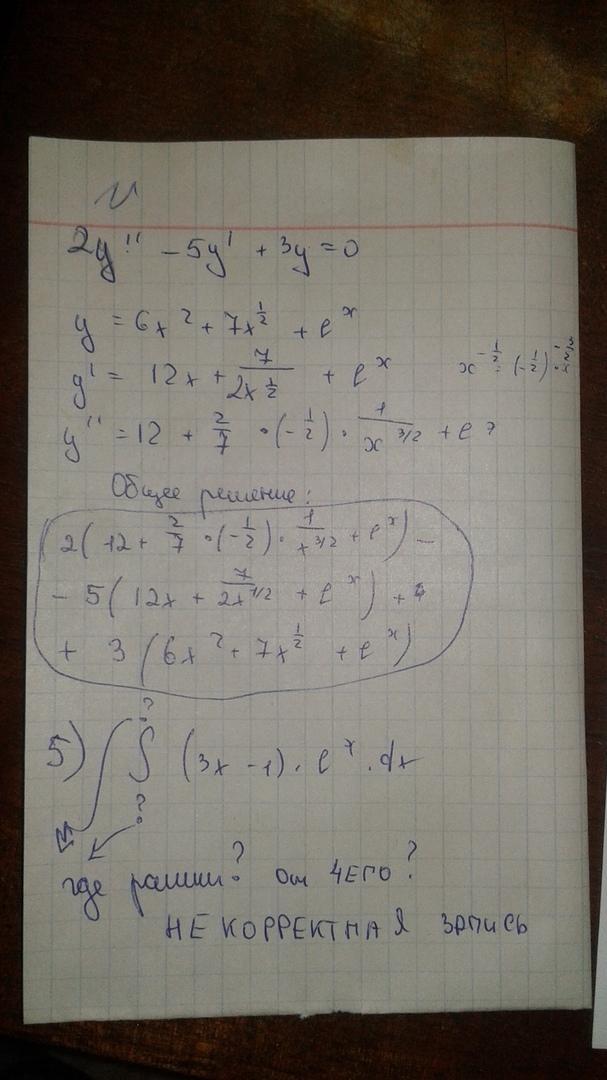 2y'' - 5y' + 3y = 0
y = 6x² + 7x^{1/2} + e^x
y' = 12x + 7/(2x^{1/2}) + e^x
x^{-1/2} = (-1/2) ·
y'' = 12 + 2/7 · (-1/2) · 1/x^{3/2} + e
Общее решение:
2(12 + 2/7 · (-1/2) · 1/x^{3/2} + e^x) -
- 5(12x + 7/(2x^{1/2}) + e^x) +
+ 3(6x² + 7x^{1/2} + e^x)
?
5) ∫ (3x - 1) · e^x · dx
?
где рамки? От ЧЕГО?
НЕ КОРРЕКТНАЯ ЗАПИСЬ